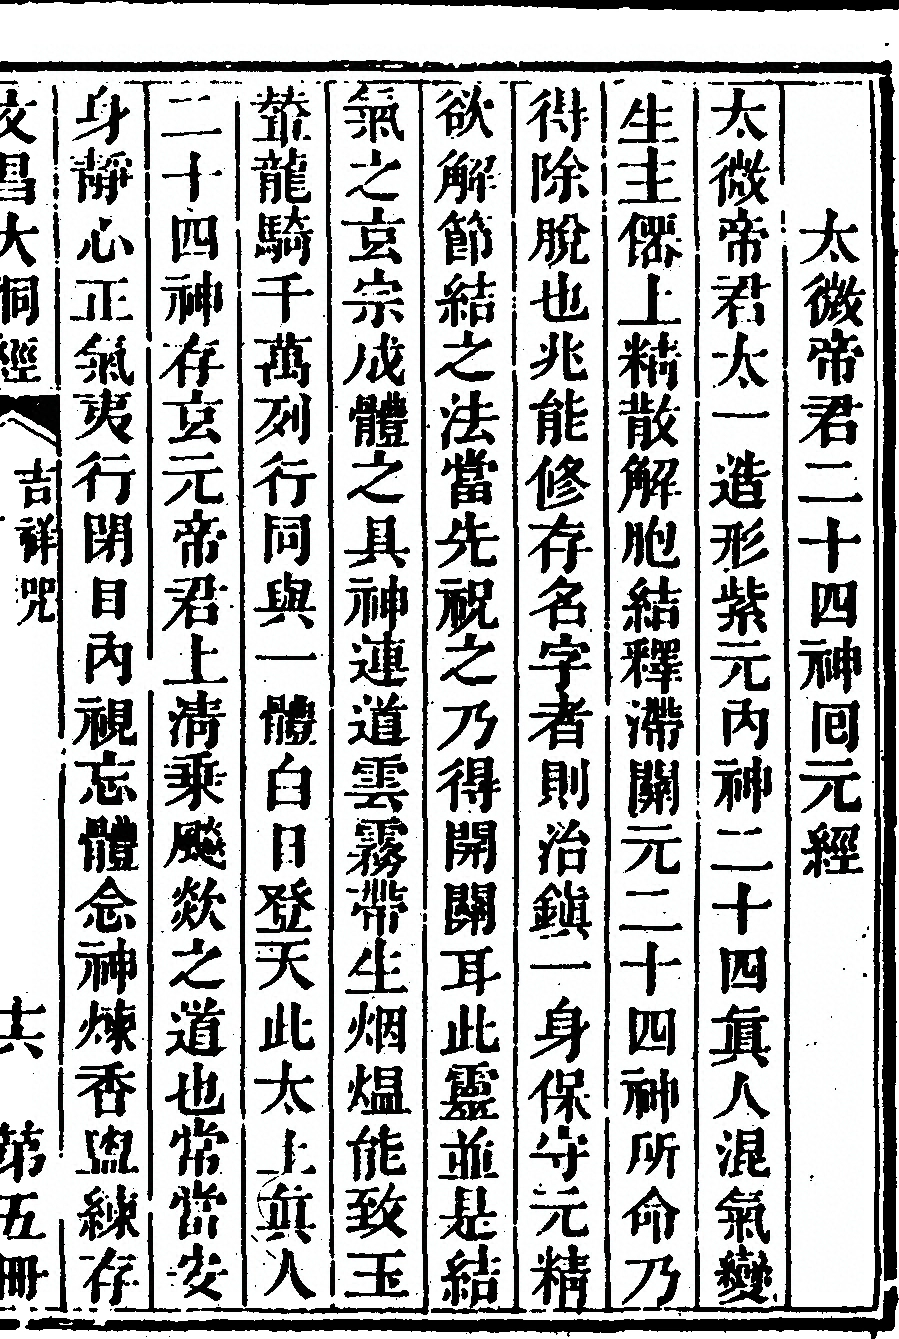 太微帝君二十四神囘元經
太微帝君太一造形紫元內神二十四眞人混氣變
生主僊上精散解胞結釋滯關元二十四神所命乃
得除脫也兆能修存名字者則治鎭一身保守元精
欲解節結之法當先祝之乃得開關耳此靈並是結
氣之玄宗成體之具神連道雲霧帶生烟熅能致玉
輦龍騎千萬列行同與一體白日登天此太上眞人
二十四神存玄元帝君上淸乘飈歘之道也常當安
身靜心正氣夷行閉目內視忘體念神煉香盥練存
文昌大洞經 吉祥咒 十六 第五冊